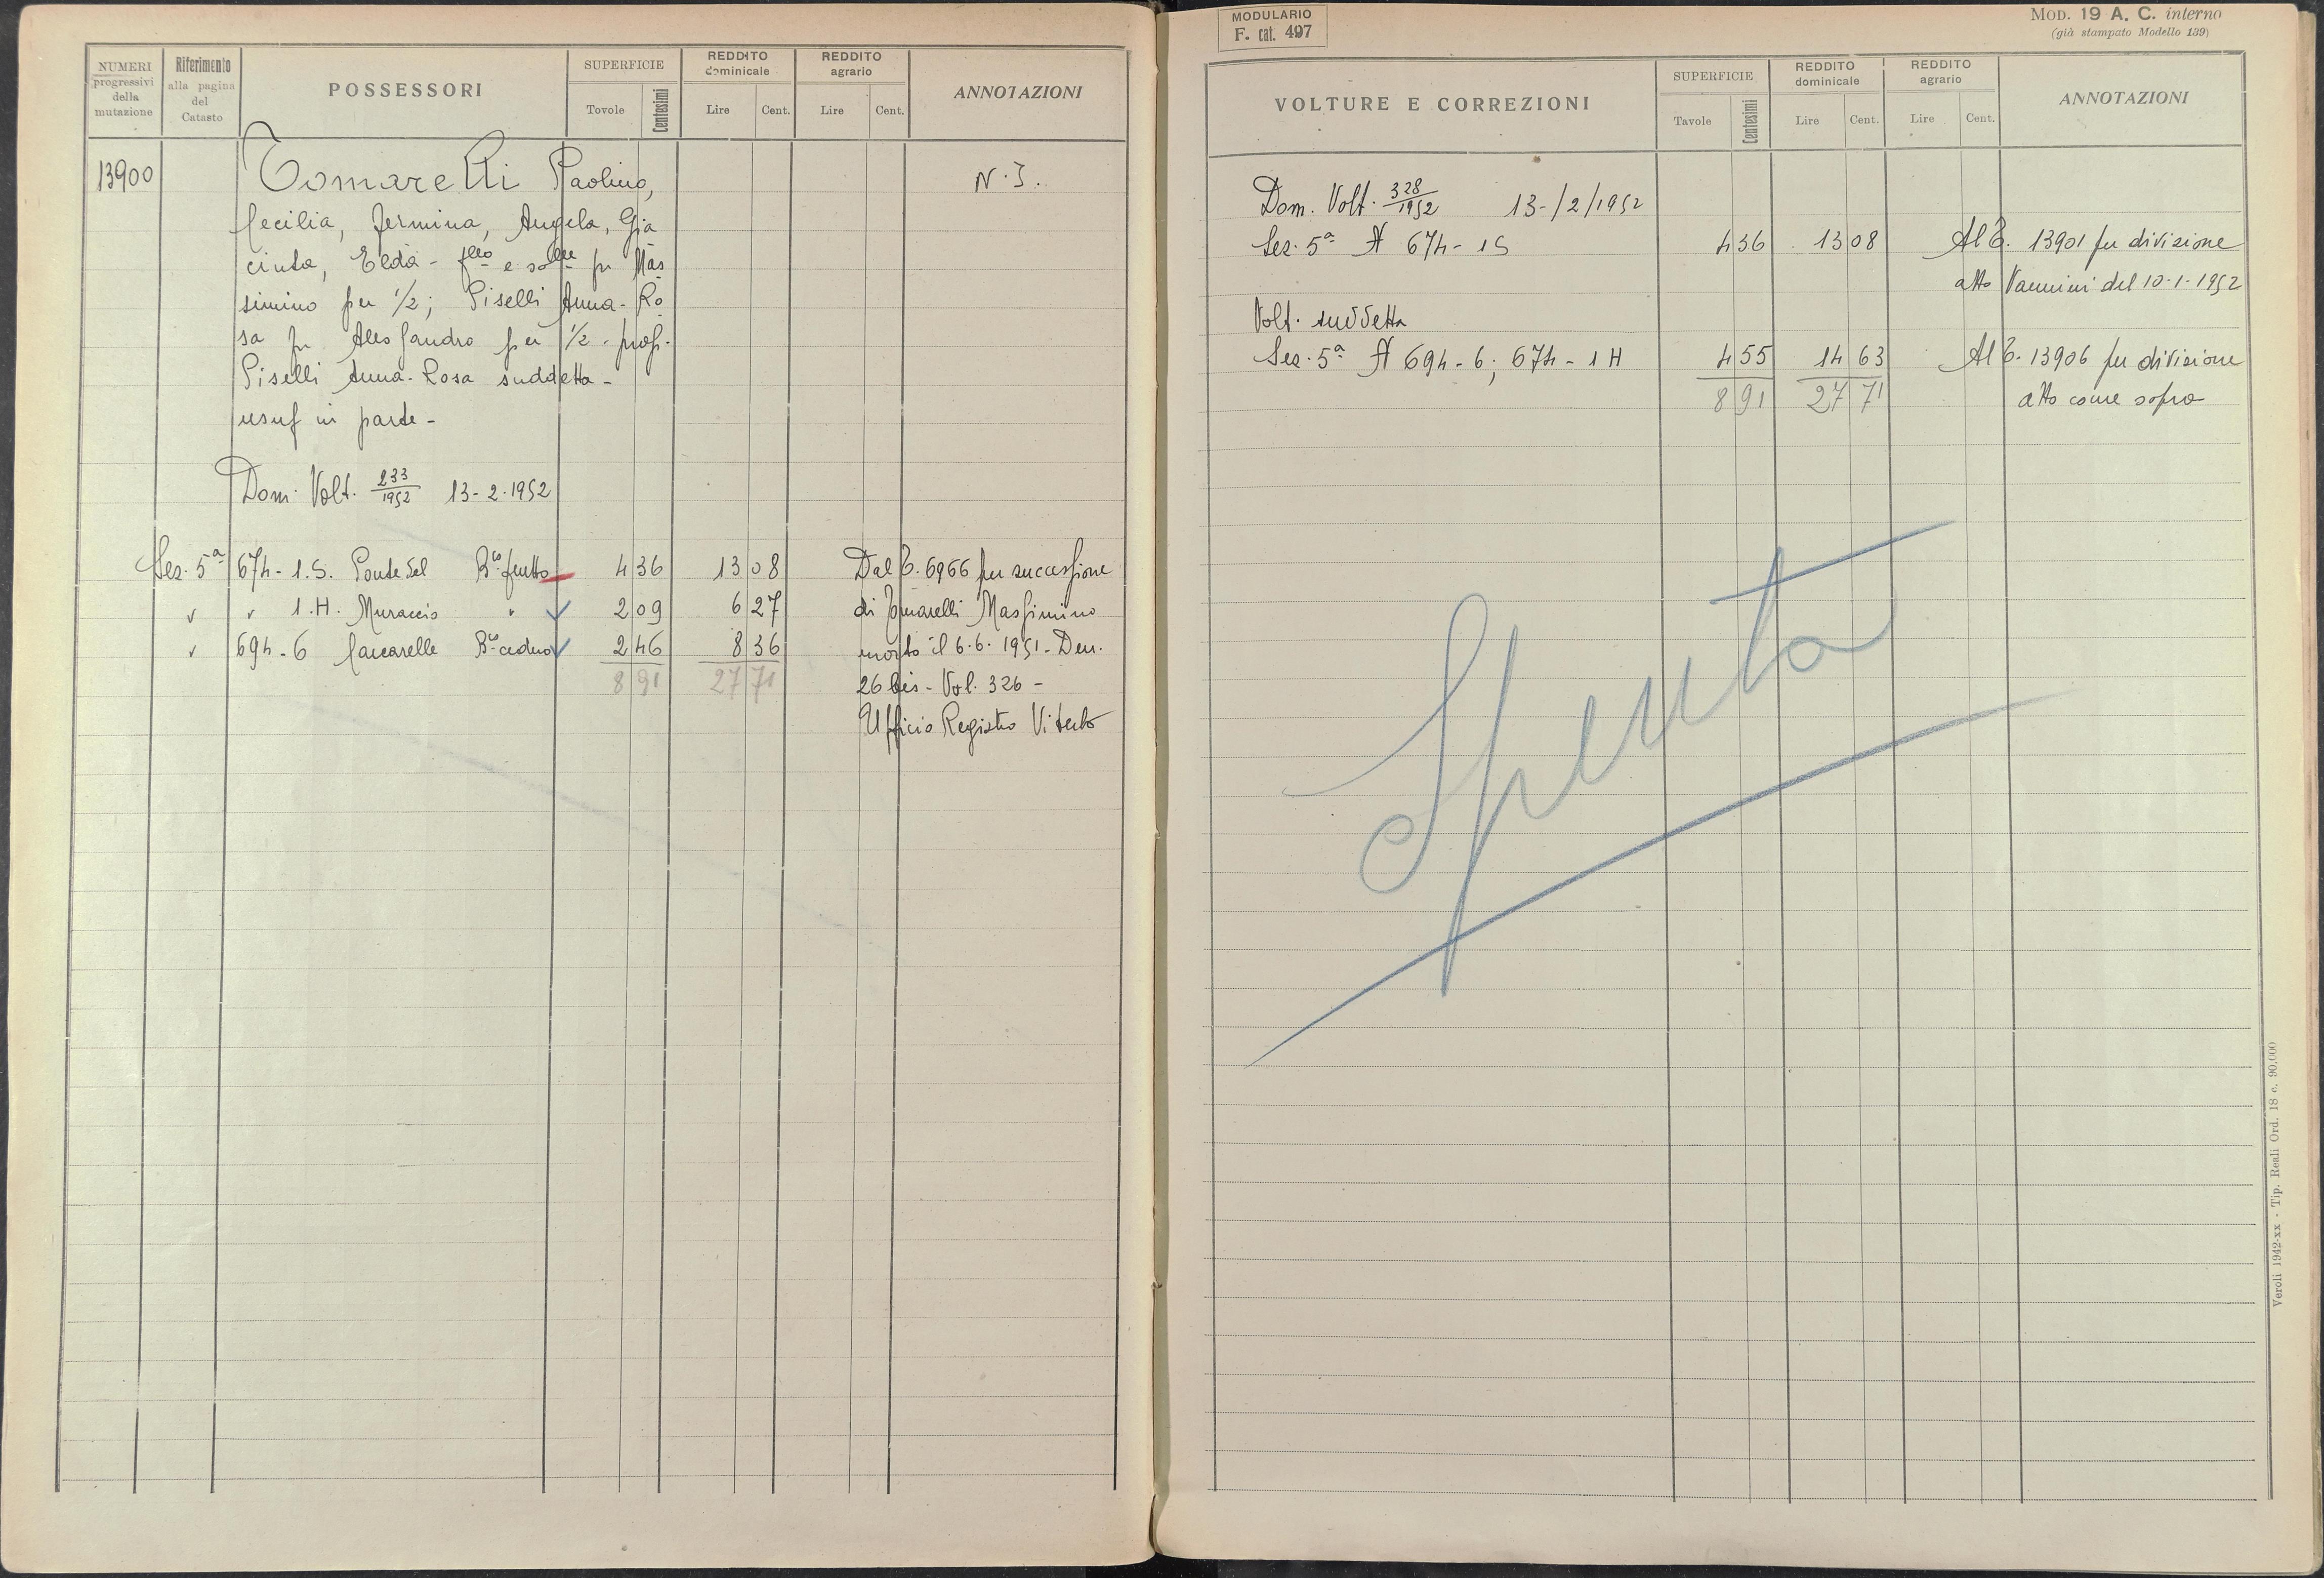 NUMERI progressivi della mutazione
Riferimento alla pagina del Catasto
POSSESSORI
SUPERFICIE
Tavole Centesimi
REDDITO dominicale
Lire Cent.
REDDITO agrario
Lire Cent.
ANNOTAZIONI
13900 Tomarelli Paolino, N. 3.
Cecilia, Fermina, Angela, Gia
cinta, Elda - fllo e solle fu Mas
simino per 1/2; Piselli Anna-Ro
sa fu Alessandro per 1/2 - prop.
Piselli Anna-Rosa suddetta -
usuf in parte -
Dom. Volt. 233/1952 13-2-1952
Sez. 5ª 674-1.S. Ponte del Bco frutto 4 36 13 08 Dal P. 6966 per successione
" " 1.H. Muraccio " 2 09 6 27 di Tomarelli Massimino
" 694-6 Bco ceduo 2 46 8 36 morto il 6.6.1951 - Den.
8 91 27 71 26 bis - Vol. 326 -
Ufficio Registro Viterbo
MODULARIO
F. cat. 497
MOD. 19 A. C. interno
(già stampato Modello 139)
VOLTURE E CORREZIONI
SUPERFICIE
Tavole Centesimi
REDDITO dominicale
Lire Cent.
REDDITO agrario
Lire Cent.
ANNOTAZIONI
Dom. Volt. 328/1952 13-/2/1952
Sez. 5ª N 674-1S 4 36 13 08 Al P. 13901 per divisione
atto Vannini del 10-1-1952
Volt. suddetta
Sez. 5ª N 694-6; 674-1H 4 55 14 63 Al P. 13906 per divisione
8 91 27 71 atto come sopra
Spenta
Veroli 1942-XX - Tip. Reali Ord. 18 c. 90.000